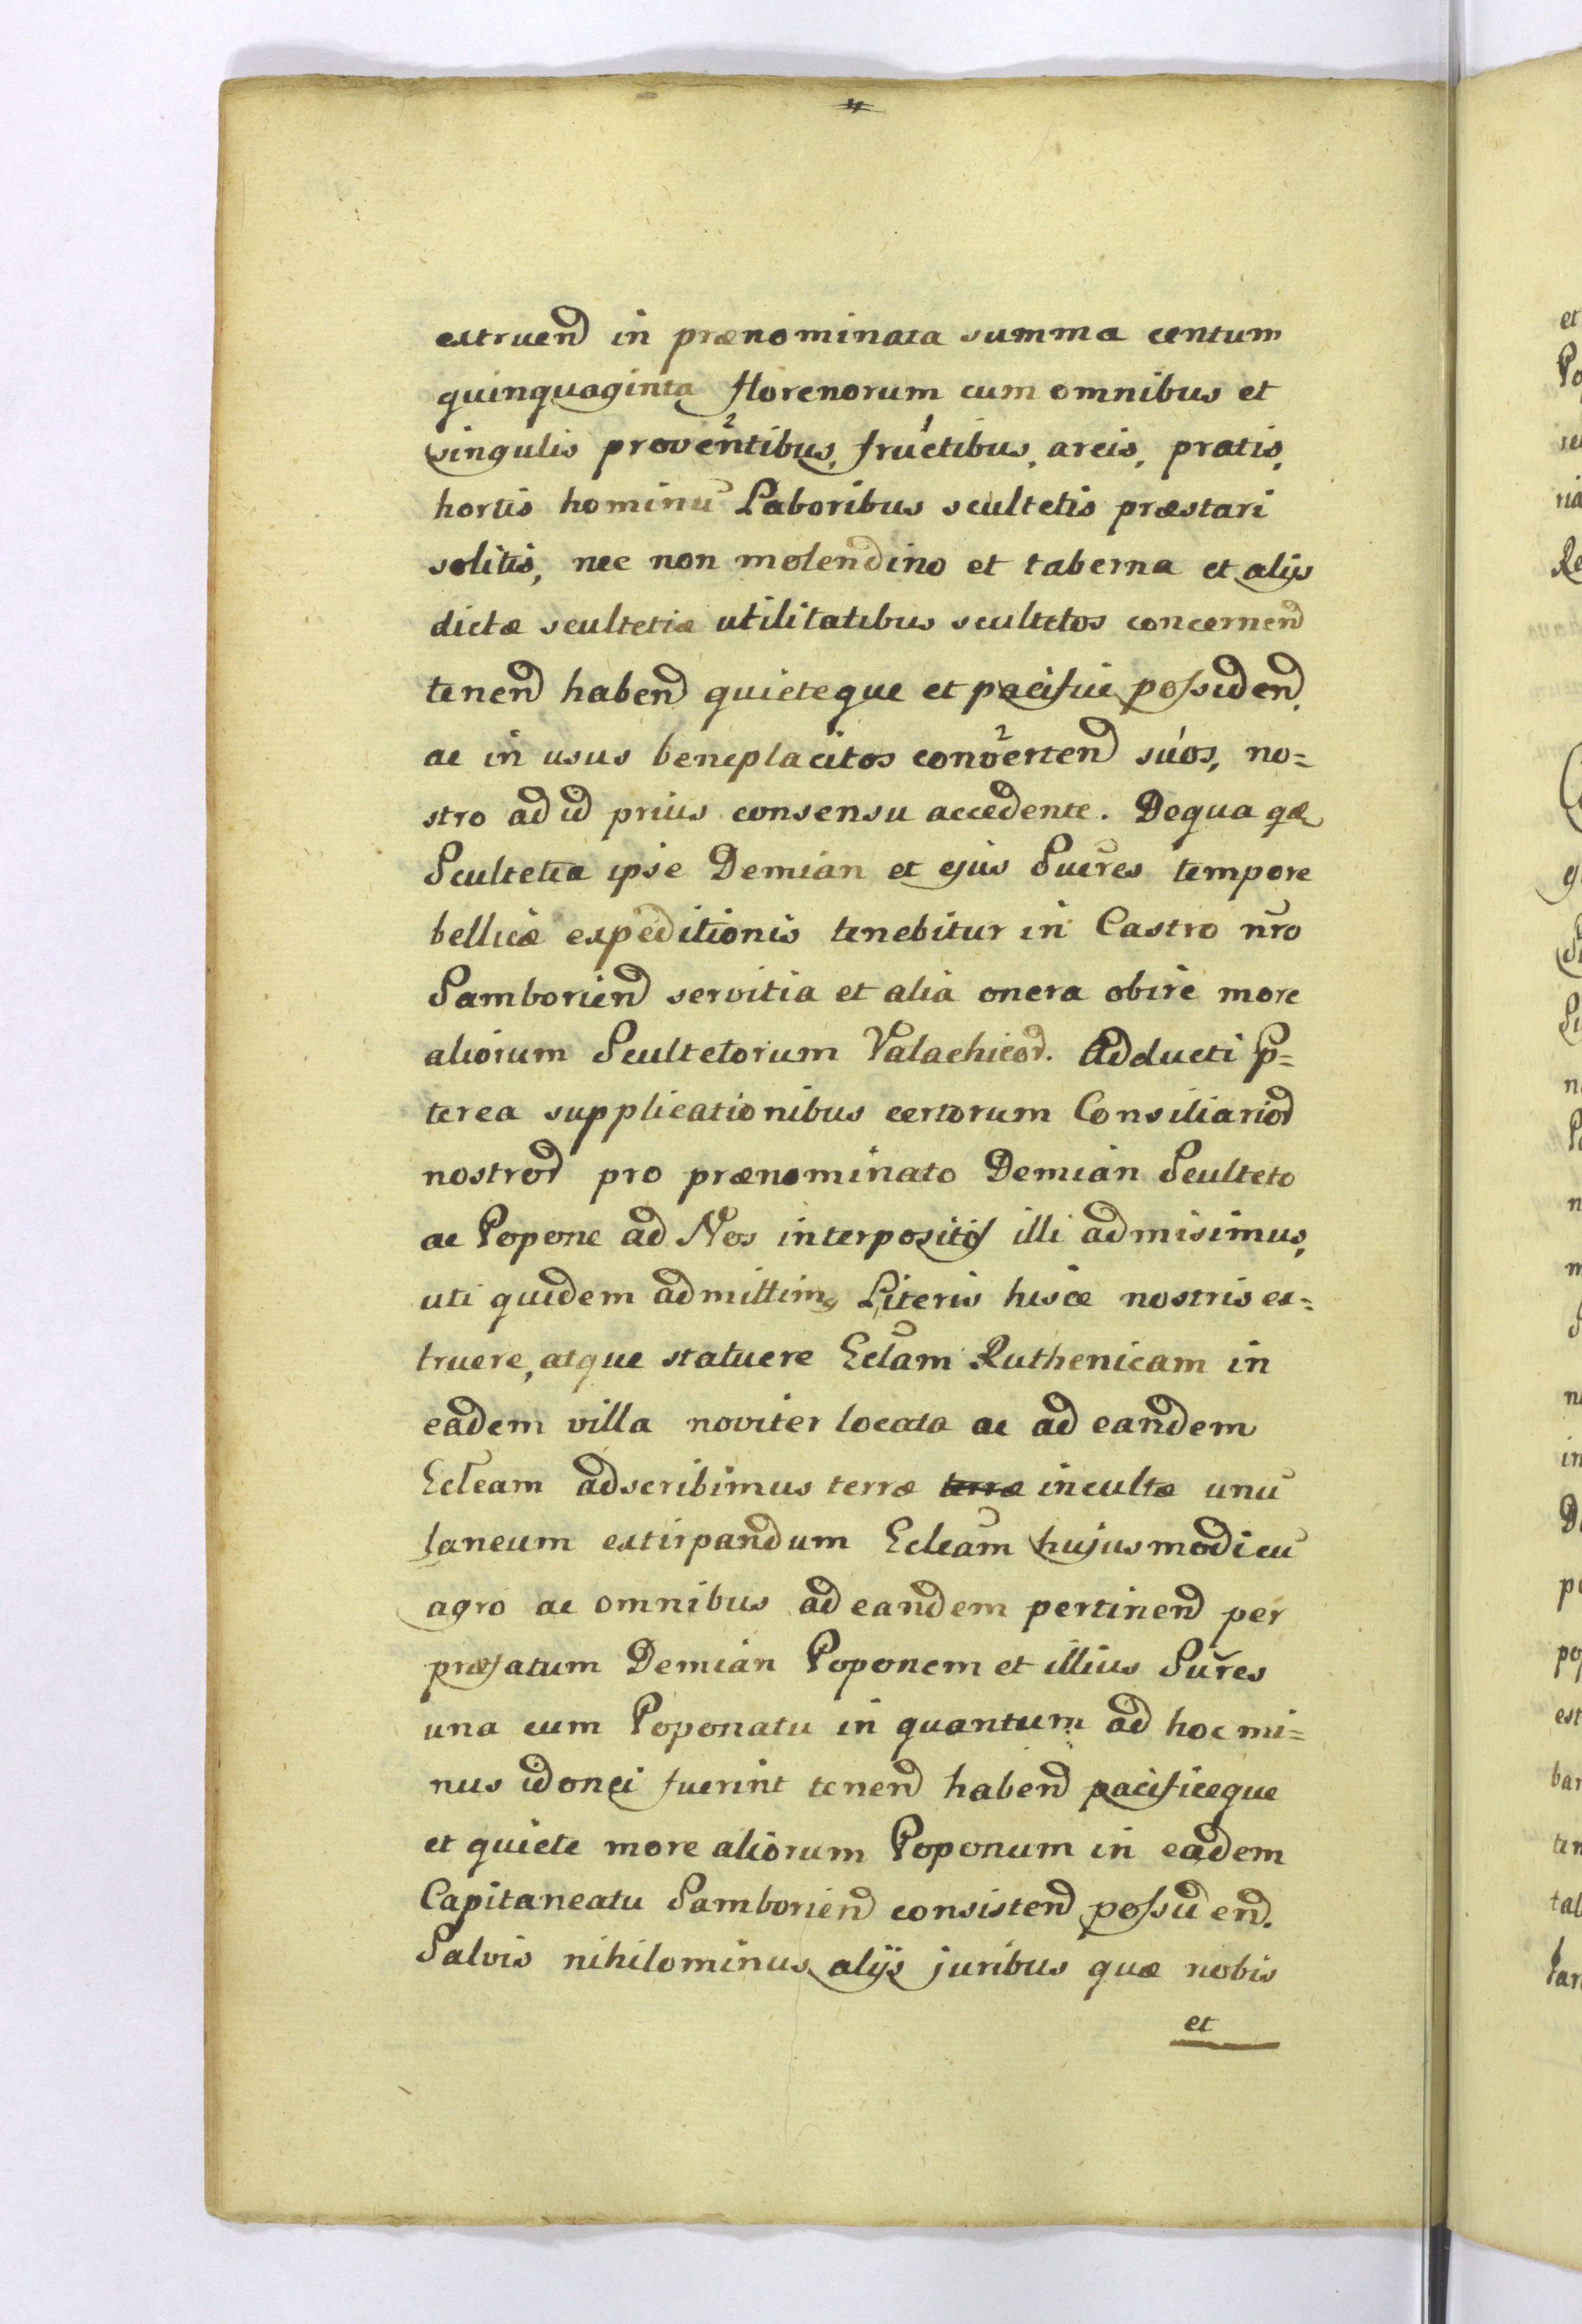 4
extruend in prænominata summa centum
quinquaginta florenorum cum omnibus et
singulis proventibus, fructibus, areis, pratis,
hortis hominū Laboribus scultetis præstari
solitis, nec non molendino et taberna et alijs
dictæ scultetiæ utilitatibus scultetos concernend
tenend habend quieteque et pacifice possidend,
ac in usus beneplacitos convertend suos, no=
stro ad id prius consensu accedente. De qua qdē
Scultetia ipse Demian et ejus Succres tempore
bellicæ expeditionis tenebitur in Castro nr̄o
Samboriend servitia et alia onera obire more
aliorum Scultetorum Valachicor. Adducti p=
terea supplicationibus certorum Consiliarior
nostror pro prænominato Demian Sculteto
ac Popone ad Nos interpositis illi admisimus,
uti quidem admittim9 Literis hisce nostris ex=
truere, atque statuere Eclam Ruthenicam in
eadem villa noviter locata ac ad eandem
Ecleam adscribimus terræ terræ incultæ unū
laneum extirpandum Ecleam hujusmodi cū
agro ac omnibus ad eandem pertinend per
præfatum Demian Poponem et illius Sucres
una cum Poponatu in quantum ad hoc mi=
nus idonei fuerint tenend habend pacificeque
et quiete more aliorum Poponum in eadem
Capitaneatu Samboriend consistend possidend.
Salvis nihilominus alijs juribus quæ nobis
et